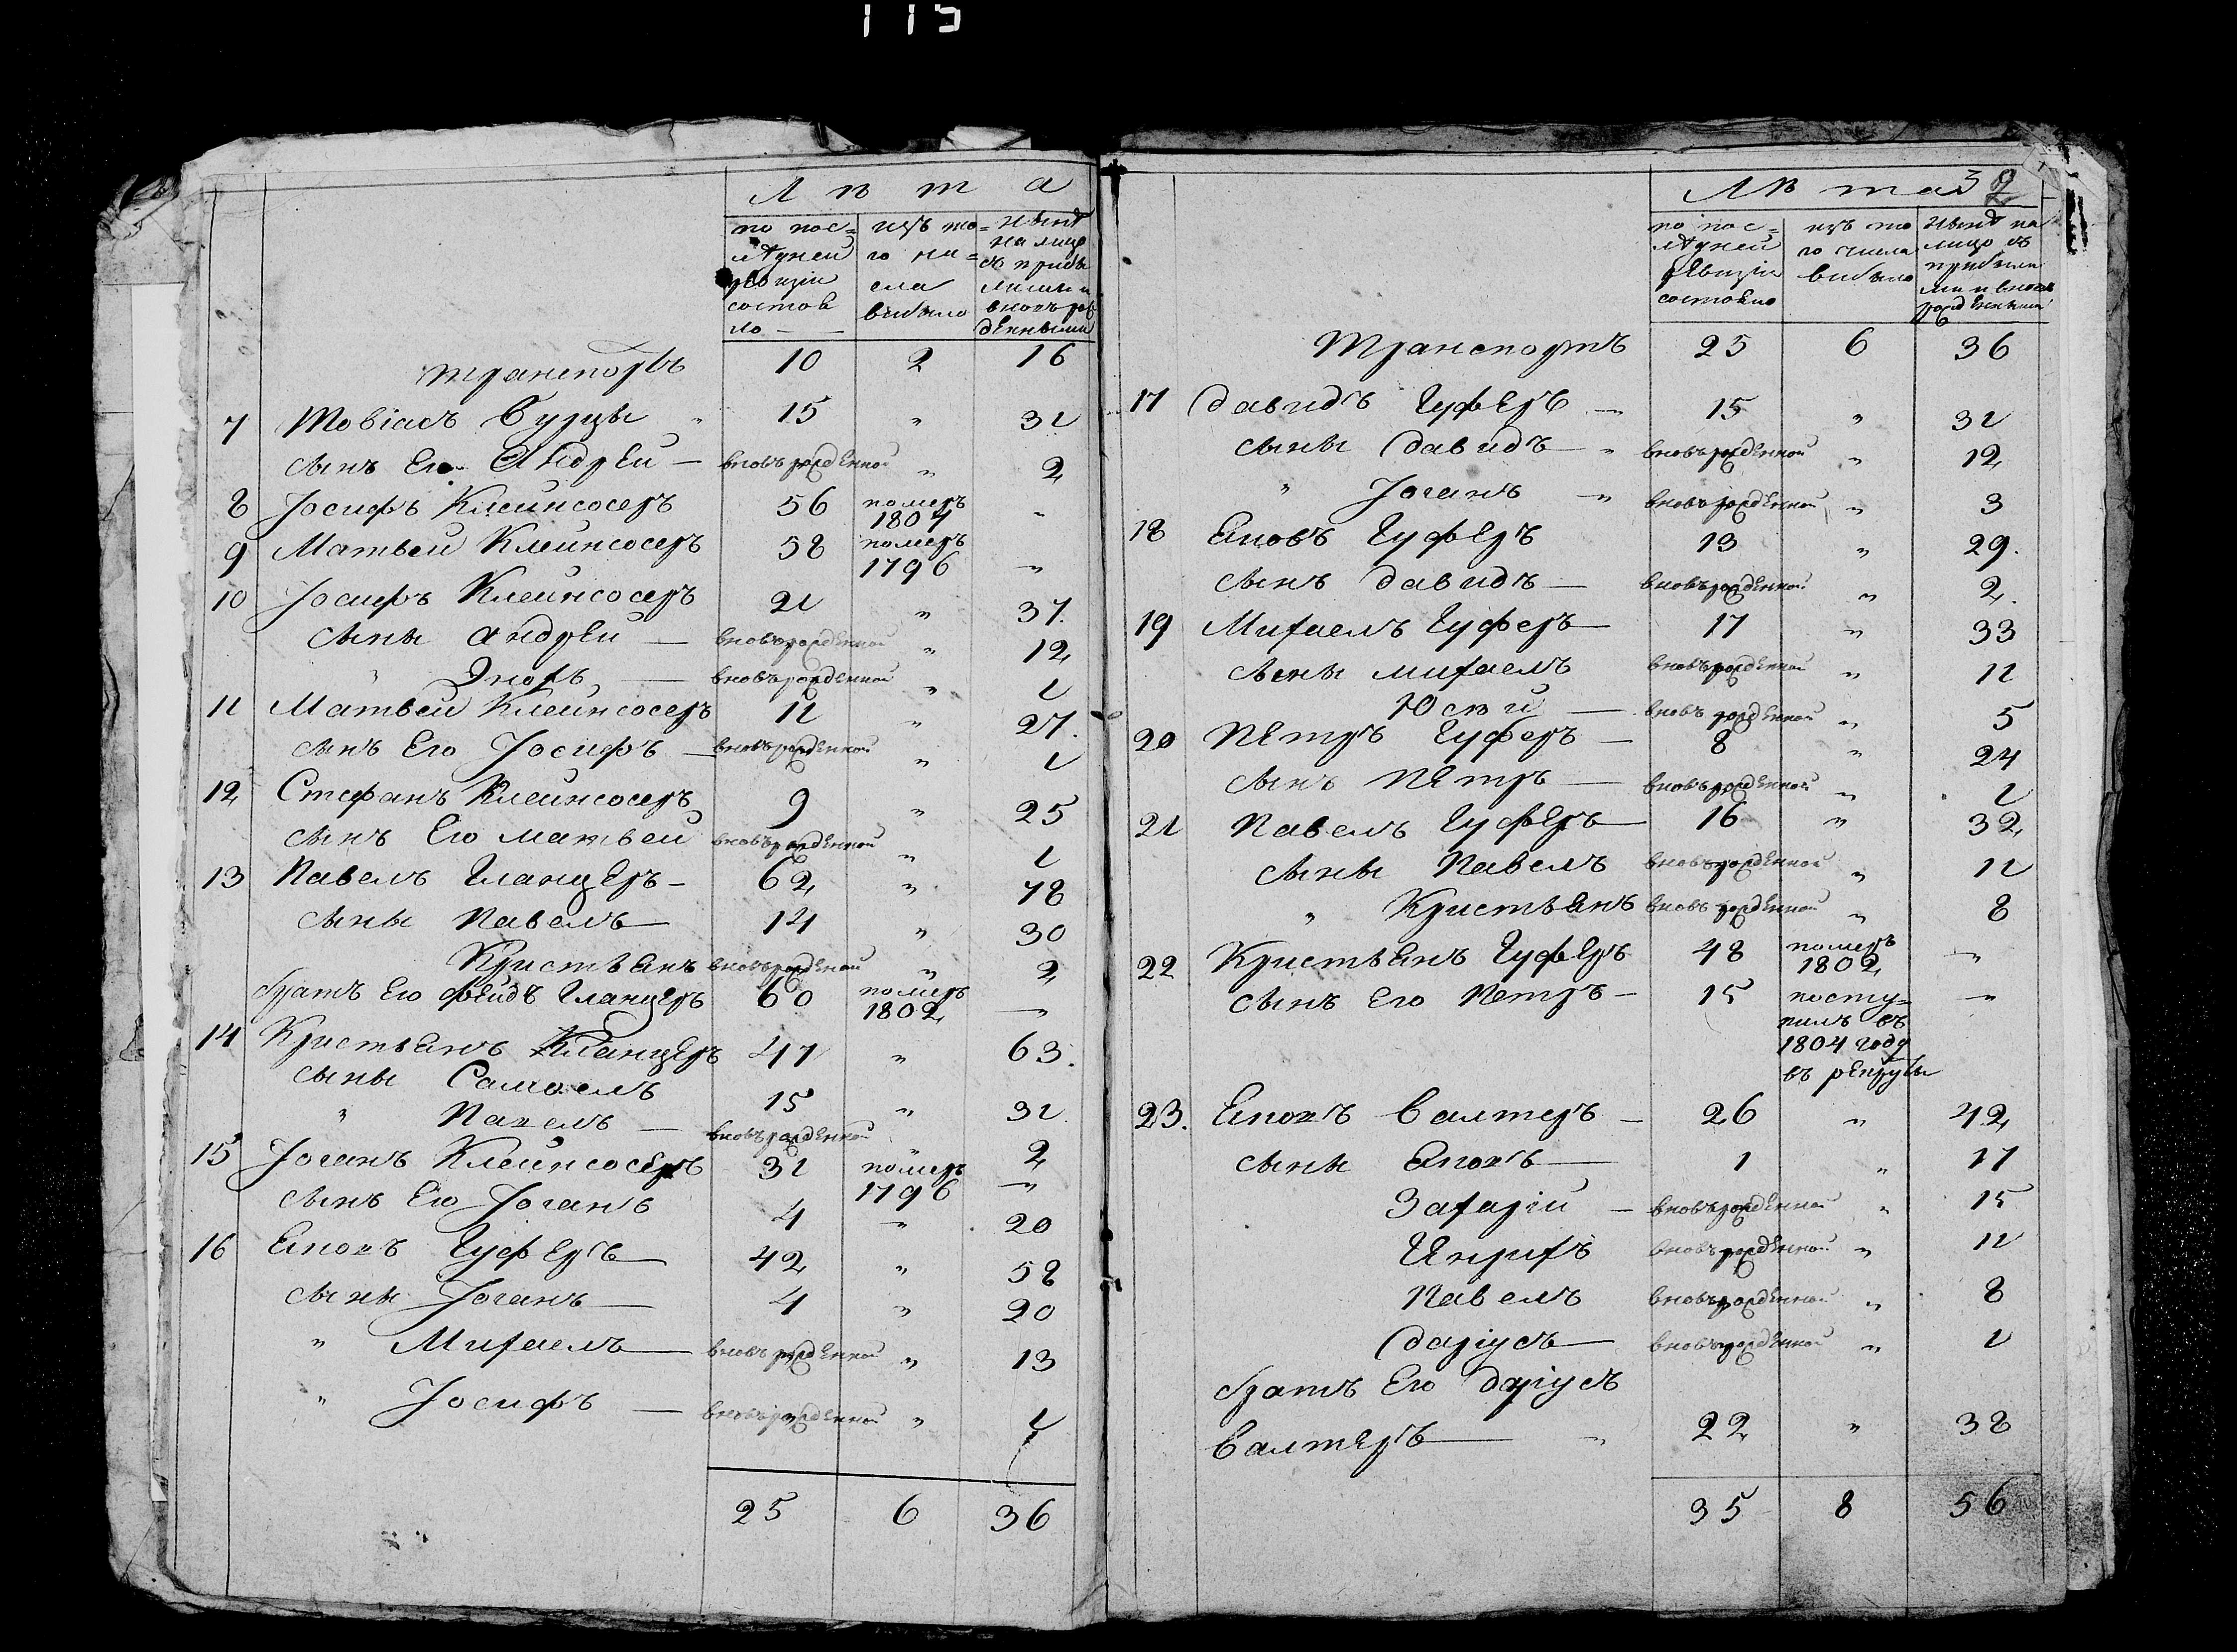 115
Лѣта
по пос=
лѣдней
ревизіи
состоя
ло —
изъ то=
го чи=
сла
выбыло
нынѣ
на лицо
съ прибы
лыми и
вновь рож
денными
транспортъ 10 2 16
7 Тобіасъ Вурцы „ 15 „ 31
сынъ Его Андрей — вновь рожденной „ 2
8 Іосифъ Клейнсосеръ 56 померъ 1807 „
9 Матвей Клейнсосеръ 58 померъ 1796 „
10 Іосифъ Клейнсосеръ 21 „ 37.
сыны Андрей — вновьрожденной „ 12
„ Энохъ — вновьрожденной „ 1
11 Матвей Клейнсосеръ 11 „ 27.
сынъ Его Іосифъ — вновьрожденной „ 1
12 Стефанъ Клейнсосеръ 9 „ 25
сынъ Его Матвей вновьрожденной „ 1
13 Павелъ Гланцеръ — 62 „ 78
сыны Павелъ — 14 „ 30
Кристьянъ вновьрожденной „ 2
братъ Его Фейдъ Гланцеръ 60 померъ 1802 „
14 Кристьянъ Кланцеръ 47 „ 63.
сыны Самоелъ 15 „ 31
„ Павелъ — вновьрожденной „ 2
15 Іоганъ Клейнсосеръ 31 померъ 1796 „
сынъ Его Іоганъ 4 „ 20
16 Еновъ Гуферъ — 42 „ 58
сыны Іоганъ — 4 „ 20
„ Михаелъ — вновь рожденной „ 13
„ Іосифъ — вновьрожденной „ 1
25 6 36
Лѣта 32
по пос=
лѣдней
ревизіи
состояло
изъ то
го числа
выбыло
нынѣ на
лицо съ
прибылы
ми и вновь
рожденными
Транспортъ 25 6 36
17 Давидъ Гуферъ — 15 „ 31
сыны Давидъ — „ вновьрожденной „ 12
„ Іоганъ — „ вновьрожденной „ 3
18 Еновъ Гуферъ 13 „ 29.
сынъ Давидъ — вновьрожденной „ 2.
19 Михаелъ Гуферъ — 17 „ 33
сыны михаелъ вновьрожденной „ 11
Юстй — вновь рожденной „ 5
20 Петръ Гуферъ — 8 „ 24
сынъ Петръ — вновьрожденной „ 1
21 Павелъ Гуферъ — 16 „ 32
сыны Павелъ вновьрожденной „ 11
„ Кристьянъ вновь рожденной „ 8
22 Кристьянъ Гуферъ 48 померъ 1802 „
сынъ Его Петръ — 15 посту= „
пилъ въ
1804 году
въ рекруты
23. Еновъ Валтеръ — 26 „ 42
сыны Еновъ — 1 „ 17
Захарій — вновьрожденной „ 15
Генрихъ вновьрожденной „ 11
Павелъ вновьрожденной „ 8
Даріусъ — вновьрожденной „ 1
братъ Его Даріусъ
Валтеръ — „ 22 „ 38
35 8 56